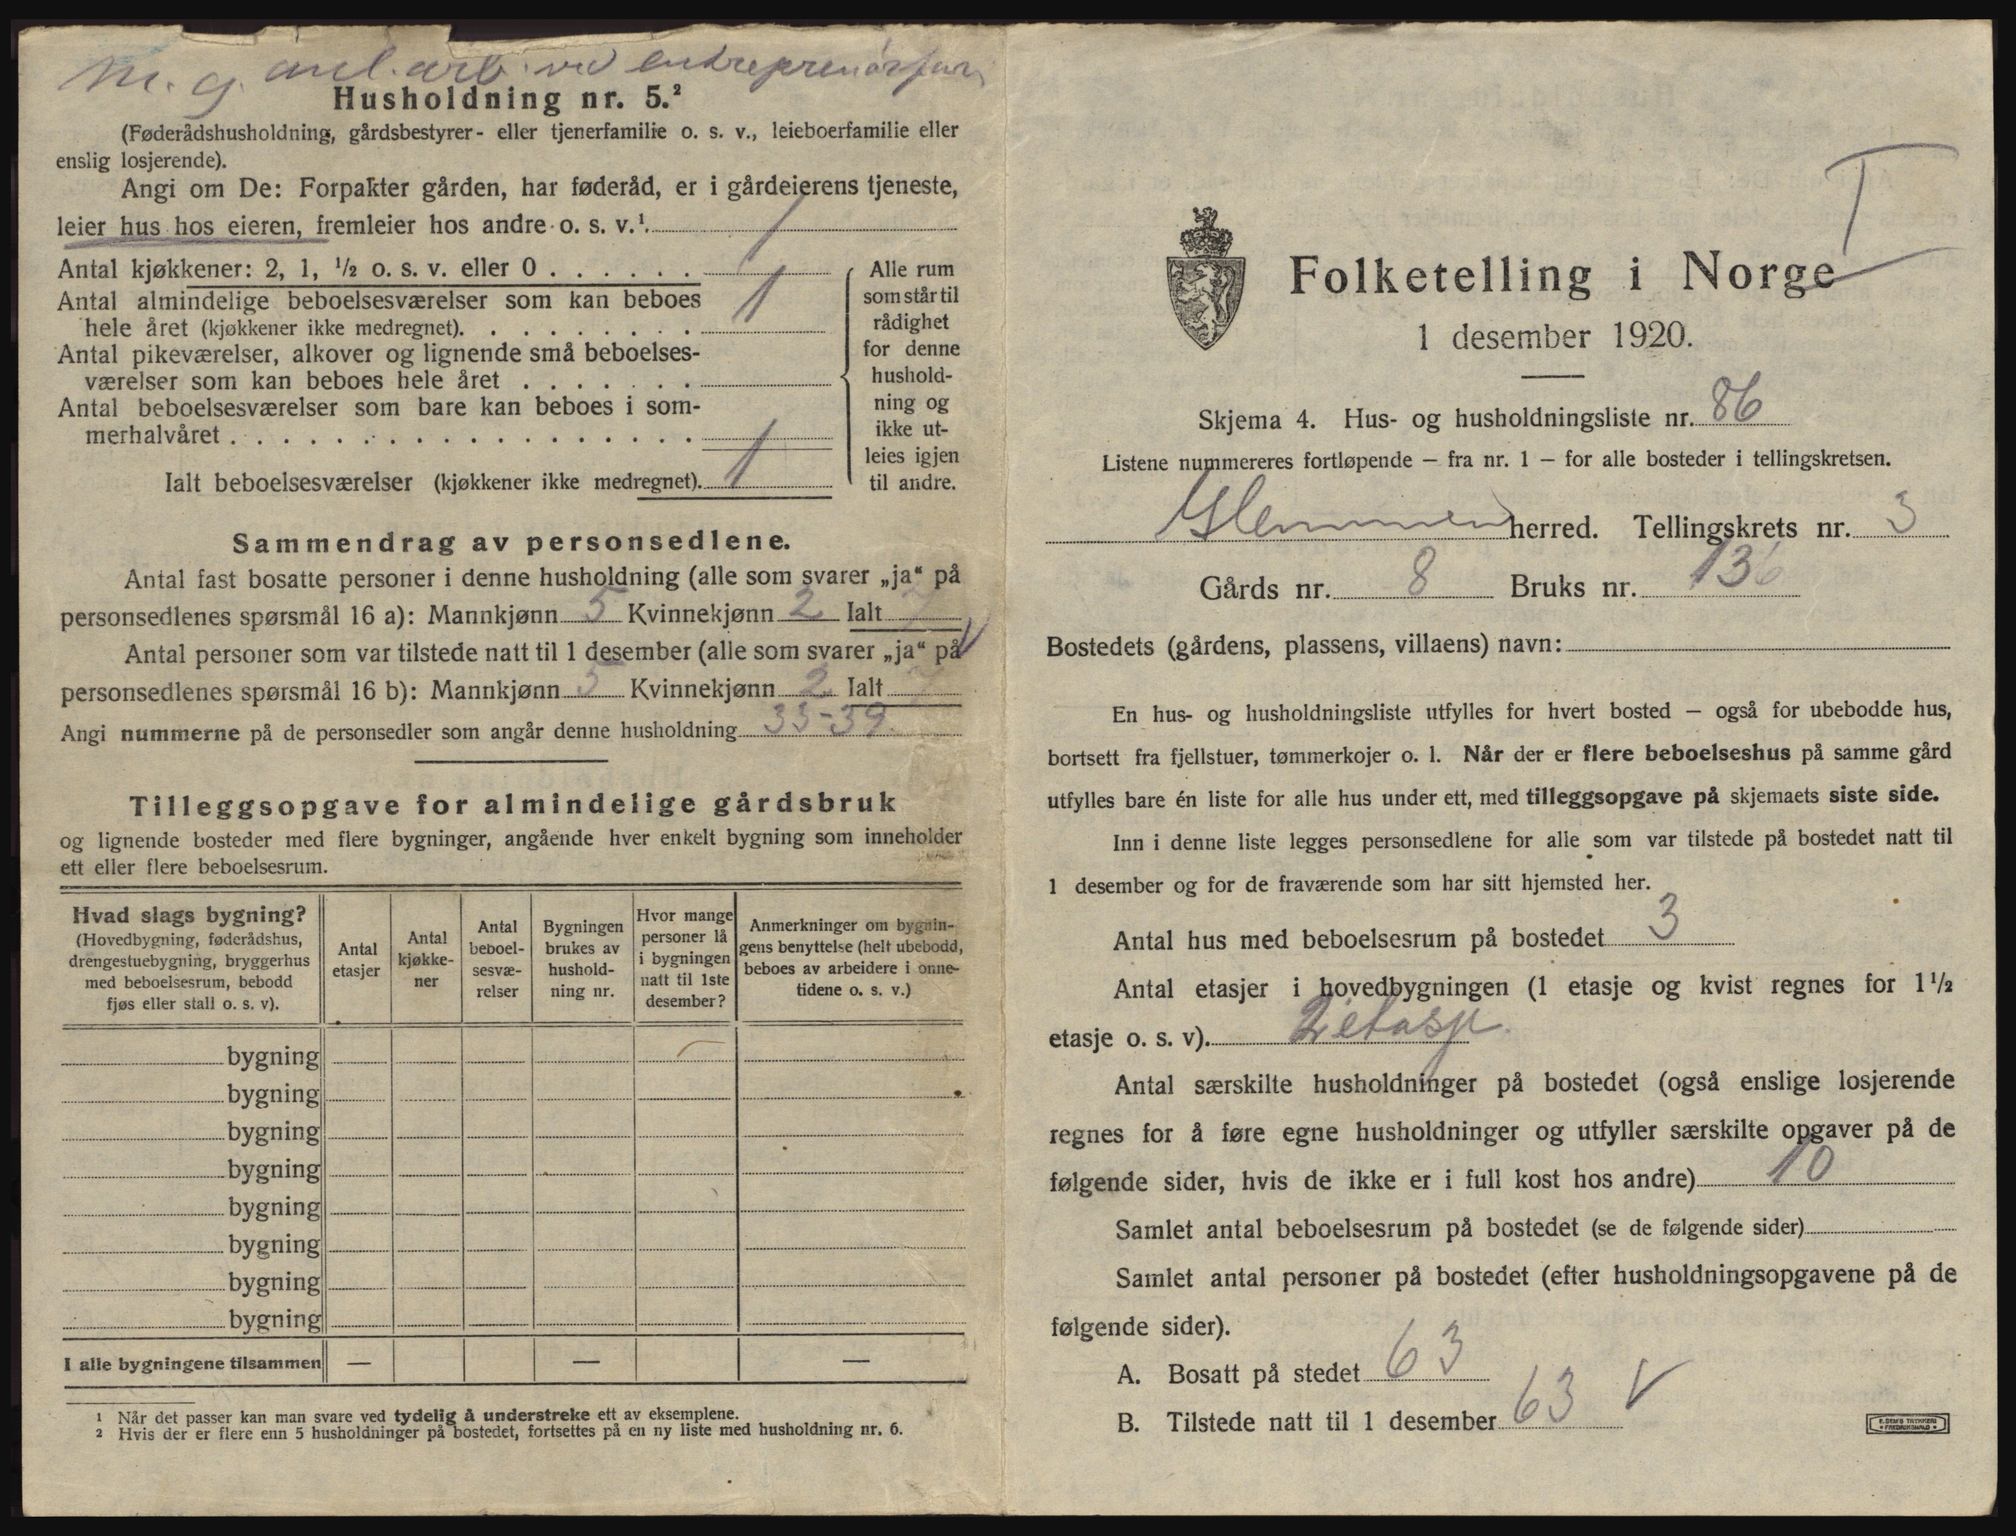 m. g. anl. arb. ved entreprenørfor.
Husholdning nr. 5.²
(Føderådshusholdning, gårdsbestyrer- eller tjenerfamilie o. s. v., leieboerfamilie eller
enslig losjerende).
Angi om De: Forpakter gården, har føderåd, er i gårdeierens tjeneste,
leier hus hos eieren, fremleier hos andre o. s. v.¹
Antal kjøkkener: 2, 1, ½ o. s. v. eller 0 . . . . . . 1
Antal almindelige beboelsesværelser som kan beboes
hele året (kjøkkener ikke medregnet). . . . . . . . . 1
Antal pikeværelser, alkover og lignende små beboelses-
værelser som kan beboes hele året . . . . . . .
Antal beboelsesværelser som bare kan beboes i som-
merhalvåret . . . . . . . . . . . . . . . . . .
Ialt beboelsesværelser (kjøkkener ikke medregnet). 1
Alle rum
som står til
rådighet
for denne
hushold-
ning og
ikke ut-
leies igjen
til andre.
Sammendrag av personsedlene.
Antal fast bosatte personer i denne husholdning (alle som svarer „ja“ på
personsedlenes spørsmål 16 a): Mannkjønn 5 Kvinnekjønn 2 Ialt 7
Antal personer som var tilstede natt til 1 desember (alle som svarer „ja“ på
personsedlenes spørsmål 16 b): Mannkjønn 5 Kvinnekjønn 2 Ialt 7
Angi nummerne på de personsedler som angår denne husholdning 33-39.
Tilleggsopgave for almindelige gårdsbruk
og lignende bosteder med flere bygninger, angående hver enkelt bygning som inneholder
ett eller flere beboelsesrum.
Hvad slags bygning?
(Hovedbygning, føderådshus,
drengestuebygning, bryggerhus
med beboelsesrum, bebodd
fjøs eller stall o. s. v).
Antal
etasjer
Antal
kjøkke-
ner
Antal
beboel-
sesvæ-
relser
Bygningen
brukes av
hushold-
ning nr.
Hvor mange
personer lå
i bygningen
natt til 1ste
desember?
Anmerkninger om bygnin-
gens benyttelse (helt ubebodd,
beboes av arbeidere i onne-
tidene o. s. v.)
bygning
bygning
bygning
bygning
bygning
bygning
bygning
bygning
I alle bygningene tilsammen — — —
¹ Når det passer kan man svare ved tydelig å understreke ett av eksemplene.
² Hvis der er flere enn 5 husholdninger på bostedet, fortsettes på en ny liste med husholdning nr. 6.
I
Folketelling i Norge
1 desember 1920.
Skjema 4. Hus- og husholdningsliste nr. 86
Listene nummereres fortløpende — fra nr. 1 — for alle bosteder i tellingskretsen.
Glemmen herred. Tellingskrets nr. 3
Gårds nr. 8 Bruks nr. 136
Bostedets (gårdens, plassens, villaens) navn:
En hus- og husholdningsliste utfylles for hvert bosted — også for ubebodde hus,
bortsett fra fjellstuer, tømmerkojer o. l. Når der er flere beboelseshus på samme gård
utfylles bare én liste for alle hus under ett, med tilleggsopgave på skjemaets siste side.
Inn i denne liste legges personsedlene for alle som var tilstede på bostedet natt til
1 desember og for de fraværende som har sitt hjemsted her.
Antal hus med beboelsesrum på bostedet 3
Antal etasjer i hovedbygningen (1 etasje og kvist regnes for 1½
etasje o. s. v). 2 etasje
Antal særskilte husholdninger på bostedet (også enslige losjerende
regnes for å føre egne husholdninger og utfyller særskilte opgaver på de
følgende sider, hvis de ikke er i full kost hos andre) 10
Samlet antal beboelsesrum på bostedet (se de følgende sider)
Samlet antal personer på bostedet (efter husholdningsopgavene på de
følgende sider).
A. Bosatt på stedet 63
B. Tilstede natt til 1 desember 63